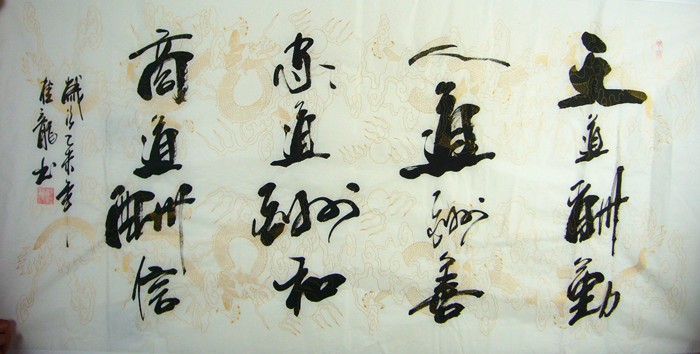 天道酬勤
人道酬善
家道酬和
商道酬信
歲次乙未年
桂龍书